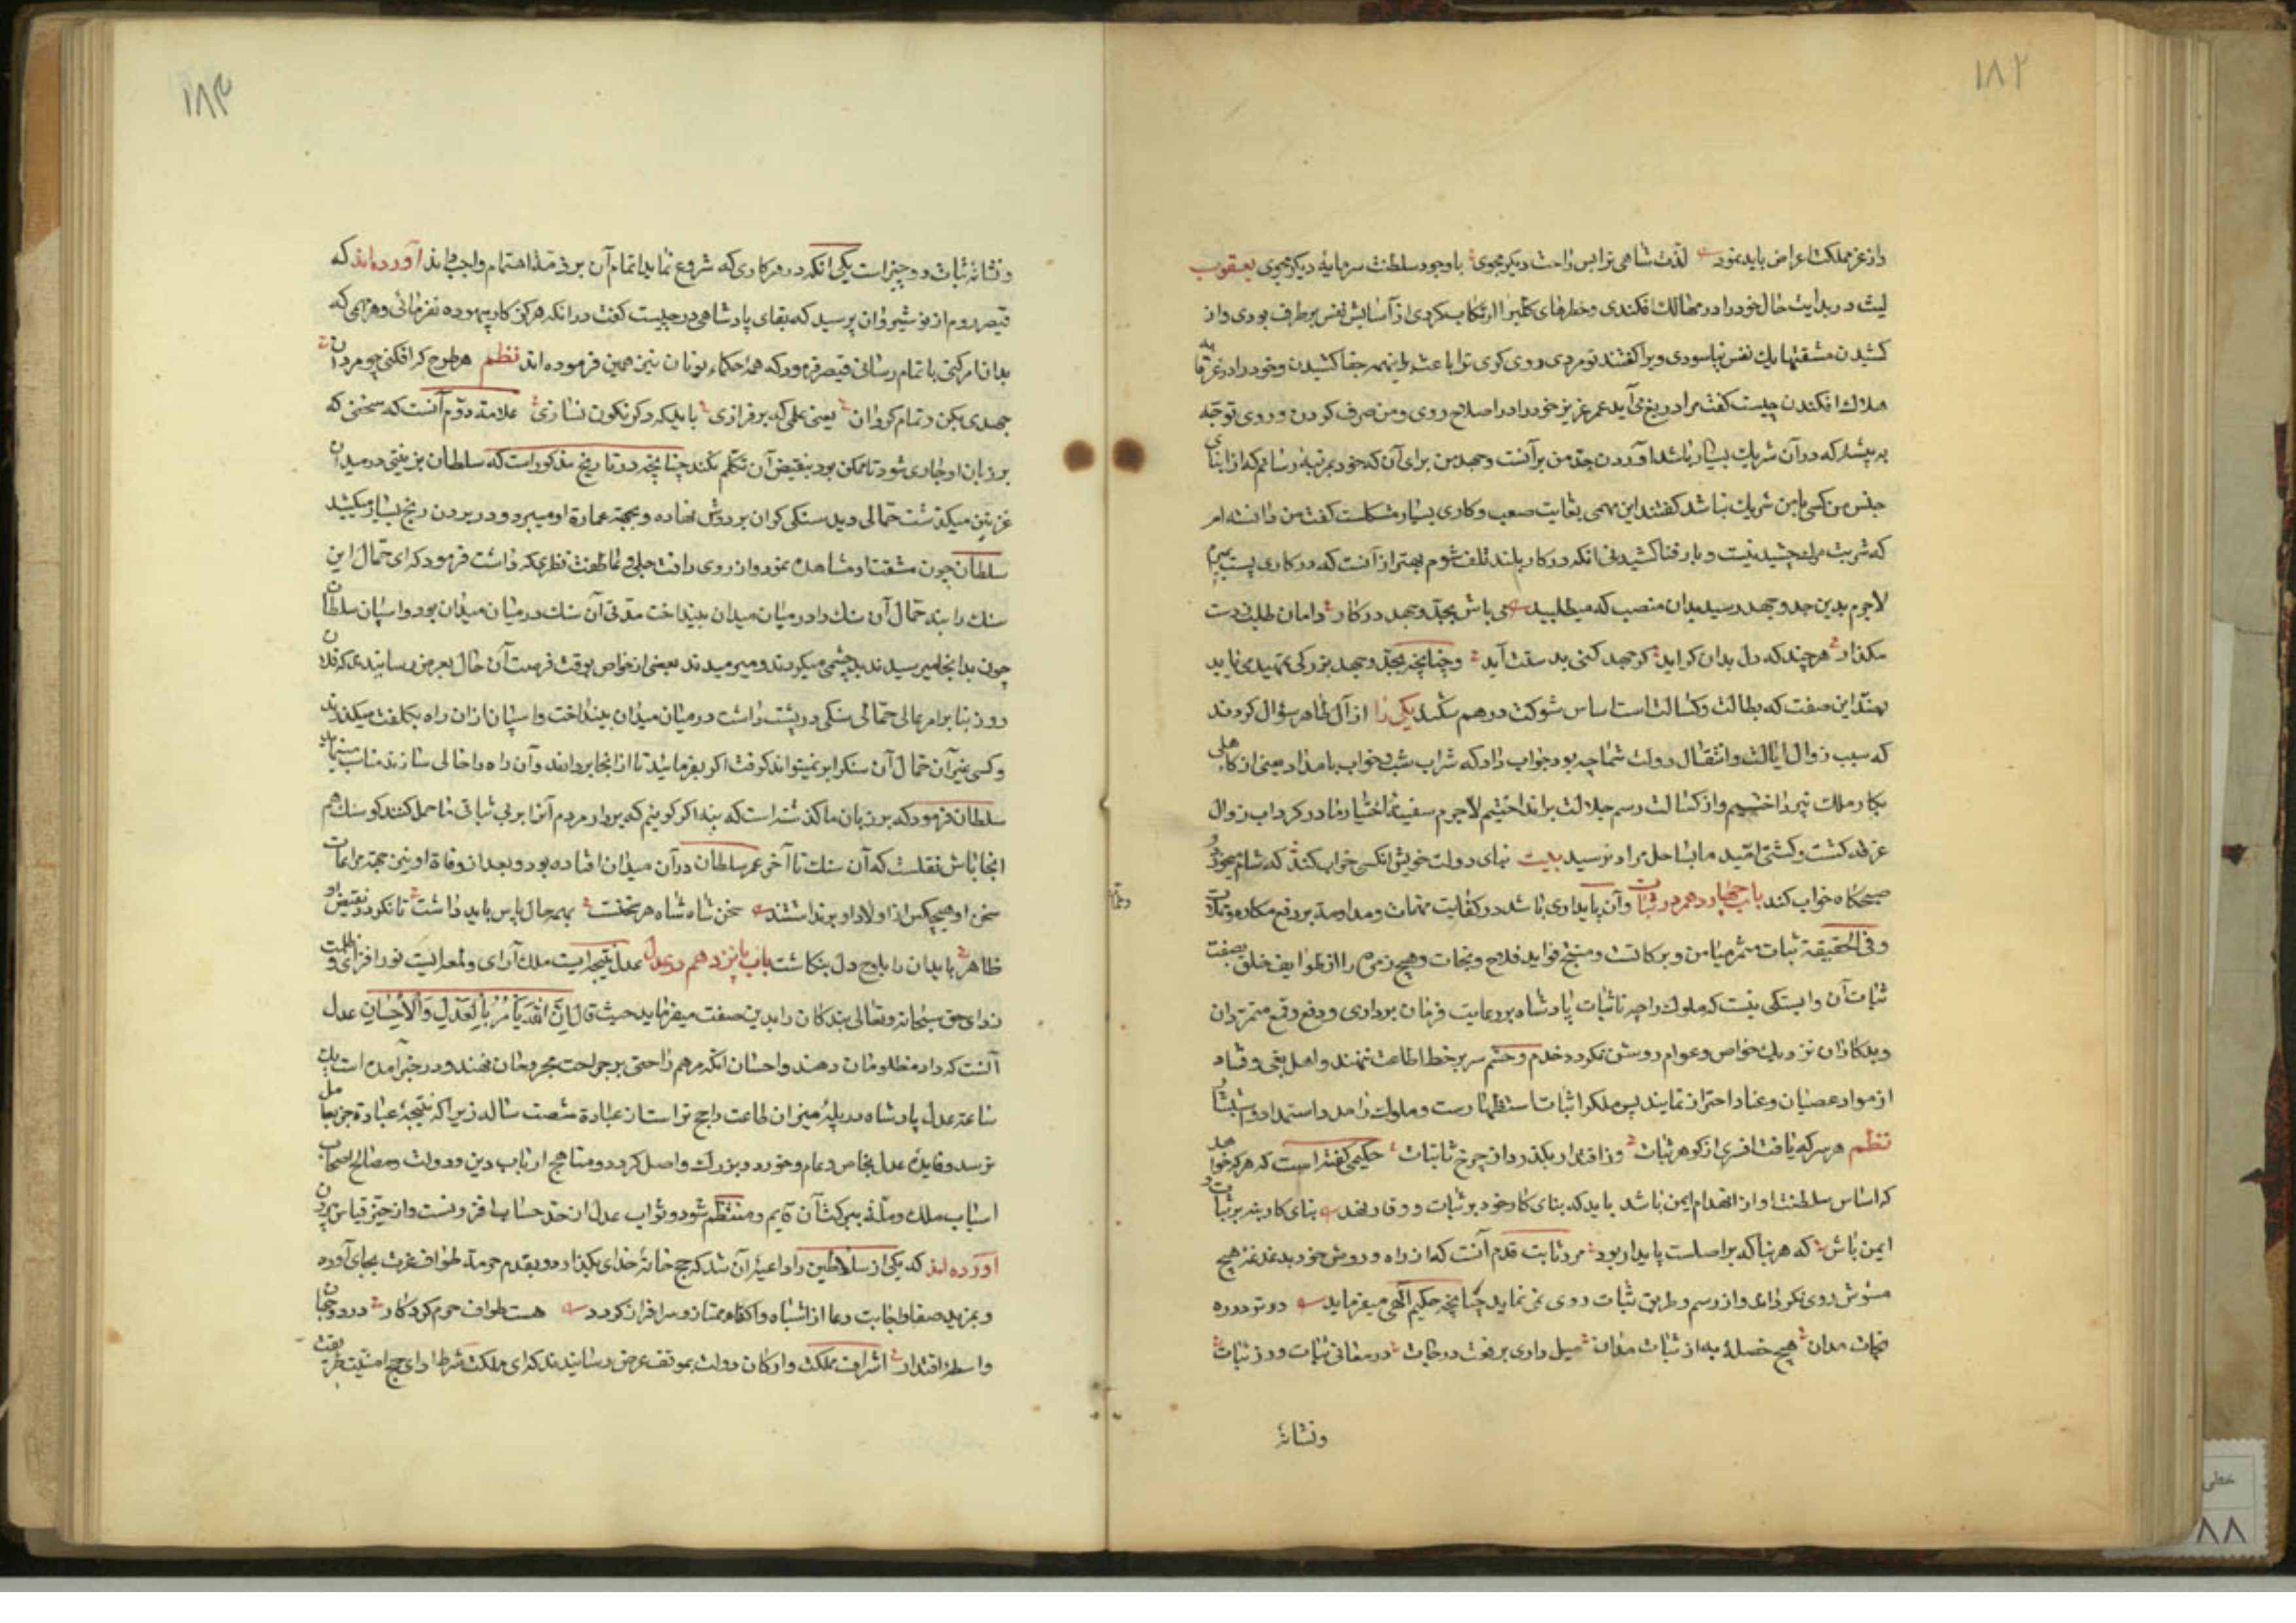 ۱۸۲
واز عز مملکت اعراض باید نمود لذت شاهی ترا بس راحت دیگر مجوی با وجود سلطنت سرمایهٔ دیگر مجوی یعقوب
لیث در بدایت حال خود را در مهالک افکندی و خطرهای کلی را ارتکاب کردی از آسایش نفس برطرف بودی و از
کشیدن مشقتها یک نفس نیاسودی ویرا گفتند تو مردی روی گری ترا باعث باینهمه جفا کشیدن و خود را در غرقابه
هلاک افکندن چیست گفت مرا دریغ می آید عمر عزیز خود را در اصلاح روی و من صرف کردن و روی توجه
به پیشه که در آن شریک بسیار باشد آوردن جد من بر آنست و جهد من برای آن که خود بمرتبهٔ رسانم که از ابنای
جنس من کسی با من شریک نباشد گفتند این مهمی بغایت صعب و کاری بسیار مشکلست گفت من دانسته ام
که شربت مرگ چشیدنیست و بار فنا کشیدنی انکه در کار بلند تلف شوم بهتر از آنست که در کاری پست بمیرم
لاجرم بدین جد و جهد رسید بدان منصب که میطلبید می باش بجد و جهد در کار دامان طلب ز دست
مگذار هرچند که دل بدان گراید گر جهد کنی بدستت آید و چنانچه بجد و جهد بزرگی تمهید می یابد
بهمتد این صفت که بطالت و کسالتست اساس شوکت درهم شکند یکی را از آل طاهر سؤال کردند
که سبب زوال ایالت و انتقال دولت شما چه بود جواب داد که شراب شب و خواب بامداد یعنی از کاهلی
بکار ملک نپرداختیم و از کسالت رسم جلالت برانداختیم لاجرم سفینهٔ اختیار ما در گرداب زوال
غرقه گشت و کشتی امید ما بساحل مراد نرسید بیت نمای دولت خویش انکس خراب کند که شام می خورد و
صبحگاه خواب کند باب چهاردهم در ثبات وآن پایداری باشد در کفایت مهمات و مداومت بر دفع مکاره و مملات
و فی الحقیقه ثبات مثمر میامن و برکاتست و منتج فواید فلاح و نجات و هیچ زمره را از طوایف خلق بصفت
ثبات آن وابستگی نیست که ملوک را چه تا ثبات پادشاه بر رعایت فرمان برداری و دفع و قمع متمردان
و بدکاران نزدیک خواص و عوام روشن نگردد خدم و حشم سر بر خط اطاعت ننهند و اهل بغی و فساد
از مواد عصیان و عناد احتراز ننمایند پس ملک را ثبات استظهارست و ملوک را مدد و استمداد
نظم هر سر که یافت افسری از گوهر ثبات از اقتدار بگذرد از چرخ ثابتات حکیمی گفته است که هر که خواهد
که اساس سلطنت او از انهدام ایمن باشد باید که بنای کار خود بر ثبات و وقار نهد بنای کار بنه بر ثبات و
ایمن باش که هر بنا که بر اصلست پایدار بود مرد ثابت قدم آنست که از راه و روش خود بدغدغهٔ هیچ
مشوش روی نگرداند و از رسم و طریق ثبات روی نمی نماید چنانچه حکیم الهی میفرماید دو تو در ره
نجات مدان هیچ خصلهٔ به از ثبات مدان میل داری برفعت درجات در معانی ثبات ورز ثبات
ونشانهٔ
۱۸۳
ونشانهٔ ثبات دو چیز است یکی انکه در هر کاری که شروع نماید اتمام آن بر ذمت اهتمام واجب داند آورده اند که
قیصر روم از نوشیروان پرسید که بقای پادشاهی در چیست گفت در انکه هرگز کار بیهوده نفرمائی و هر مهمی که
بدان امر کنی باتمام رسانی قیصر فرمود که همهٔ حکماء یونان نیز همین فرموده اند نظم هر طرح که افکنی چو مردان
جهدی بکن و تمام گردان یعنی علمی که برفرازی باید که دگر نگون نسازی علامت دوم آنست که سخنی که
بر زبان او جاری شود تا ممکن بود بنقیض آن تکلم نکند چنانچه در تاریخ مذکور است که سلطان غزنینی در میدان
غزنین میگذشت حمالی دید سنگی گران بر دوش نهاده و بجهت عمارة او میبرد و در بردن رنج بسیار میکشید
سلطان چون مشقت او مشاهده نمود و از روی رافت جبلی و عاطفت فطری که داشت فرمود که ای حمال این
سنک را بنه حمال آن سنک را در میان میدان بینداخت مدتی آن سنک در میان میدان بود و اسپان سلطان
چون بدانجا میرسیدند بد چشمی میکردند و میرمیدند بعضی از خواص بوقت فرصت آن حال بعرض رسانیدند که فلان
روز بنا بر امر عالی حمالی سنگی در پشت داشت در میان میدان بینداخت و اسپان از ان راه بکلفت میگذرند
و کسی بغیر آن حمال آن سنک را بر نمیتواند گرفت اگر بفرمایند تا از انجا بردارند و آن راه را خالی سازند مناسب مینماید
سلطان فرمود که بر زبان ما گذشته است که بنه اگر گوئیم که بردار مردم آنرا بر بی ثباتی ما حمل کنند گو سنک هم
انجا باش نقلست که آن سنک تا آخر عمر سلطان در آن میدان افتاده بود و بعد از وفاة او نیز جهت مراعات
سخن او هیچکس از اولاد او برنداشتند سخن شاه شاه هر سخنست بهمه حال پاس باید داشت تا نگردد نقیض او
ظاهر باید ان را بلوح دل بنگاشت باب پانزدهم در عدل عدل نتیجه ایست ملک آرای و لمعه ایست نور افزای و ظلمت
زدای حق سبحانه و تعالی بندگان را بدین صفت میفرماید حیث قال اِنَّ اللّٰهَ یَأْمُرُ بِالْعَدْلِ وَالْاِحْسَانِ عدل
آنست که داد مظلومان دهند و احسان انکه مرهم راحتی بر جراحت مجروحان نهند و در خبر آمده است که یک
ساعته عدل پادشاه در پلهٔ میزان طاعت راجح تر است از عبادة شصت ساله زیرا که نتیجهٔ عبادة جز بعامل
نرسد و فایدهٔ عدل بخاص و عام و خورد و بزرک واصل گردد و مناهج ارباب دین و دولت و مصالح اصحاب
اسباب ملک و ملت ببرکت آن قایم و منتظم شود و ثواب عدل از حد حساب افزونست و از حیز قیاس بیرون
آورده اند که یکی از سلاطین را داعیهٔ آن شد که حج خانهٔ خدای بگذارد و بقدم حرمت طواف عزت بجای آورده
و بمزید صفا و اجابت دعا از اشباه و اکفاء ممتاز و سرافراز گردد هست طواف حرم کردگار در دو جهان
واسطهٔ اقتدار اشراف مملکت و ارکان دولت بموقف عرض رسانیدند که ای ملک شرط ادای حج امنیت طریقست